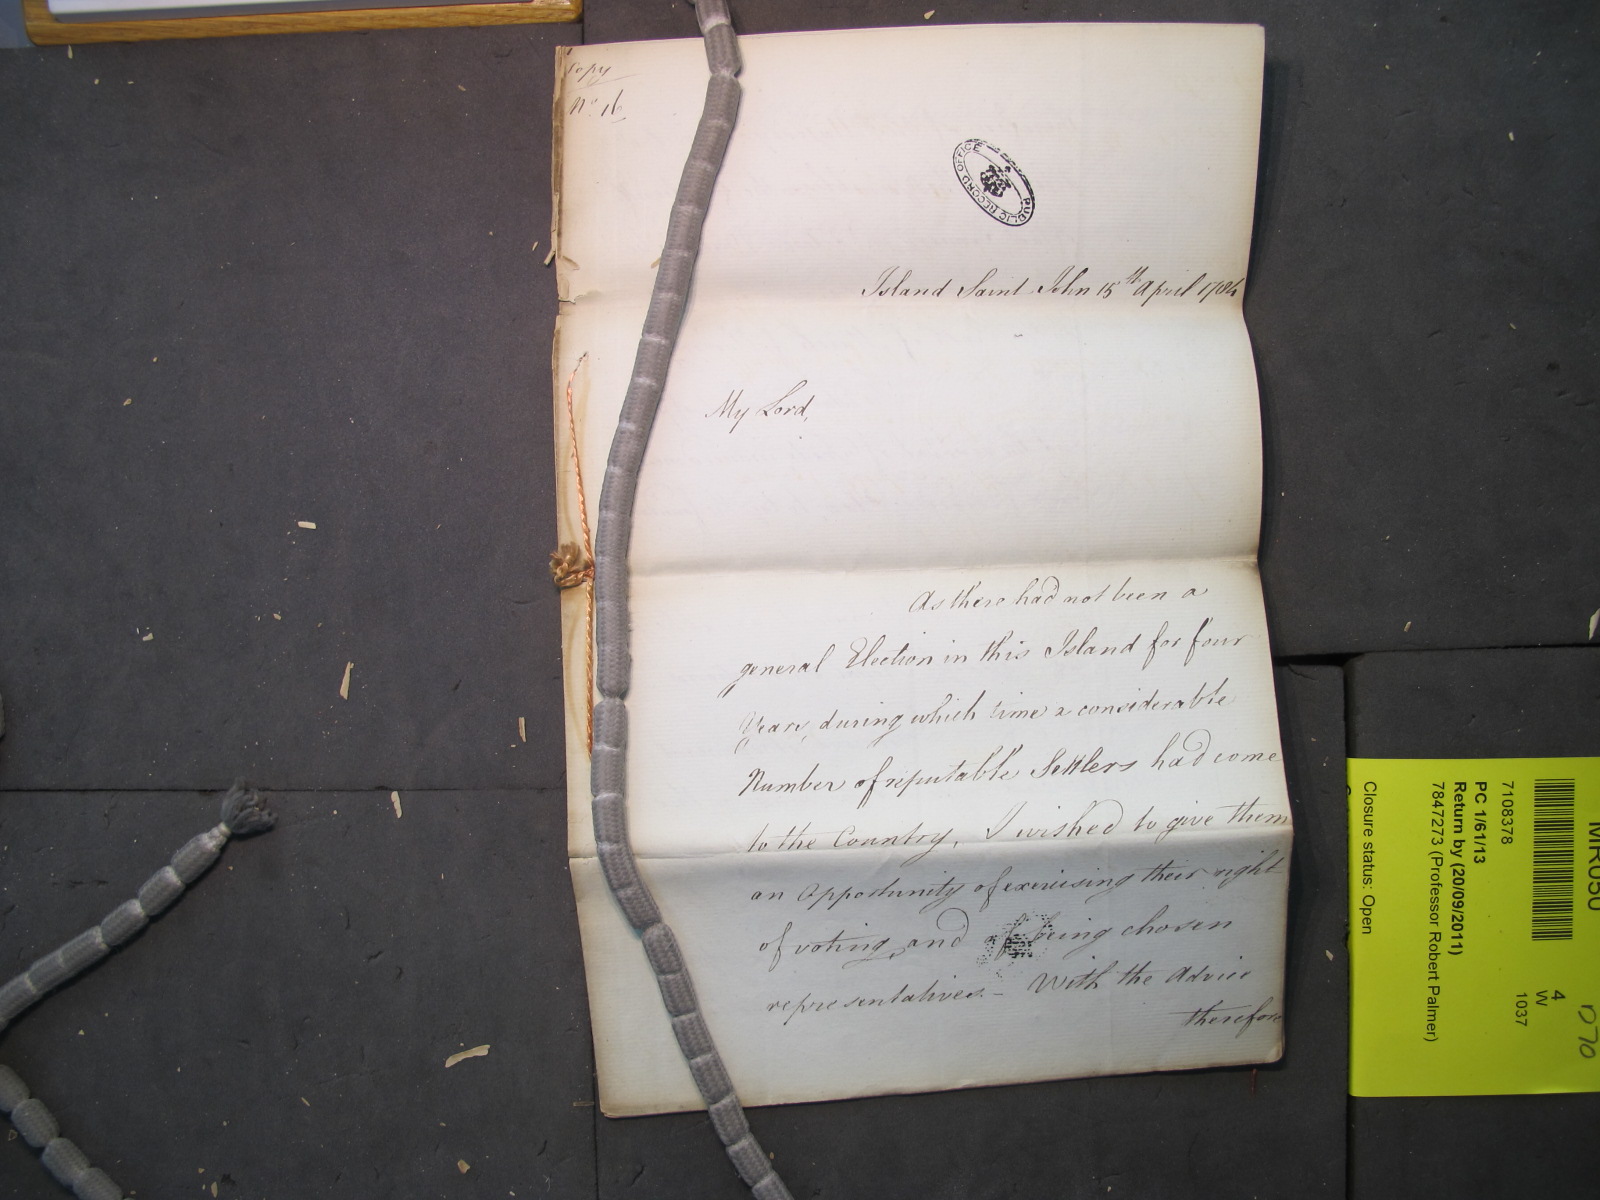 Copy
No. 16
PUBLIC RECORD OFFICE
Island Saint John 15th April 1784
My Lord,
As there had not been a
general Election in this Island for four
Years, during which time a considerable
Number of reputable Settlers had come
to the Country, I wished to give them
an Opportunity of exercising their right
of voting and of being chosen
representatives - With the Advice
therefore
MR050
7108378
PC 1/61/13
Return by (20/09/2011)
7847273 (Professor Robert Palmer)
Closure status: Open
4
W
1037
D70